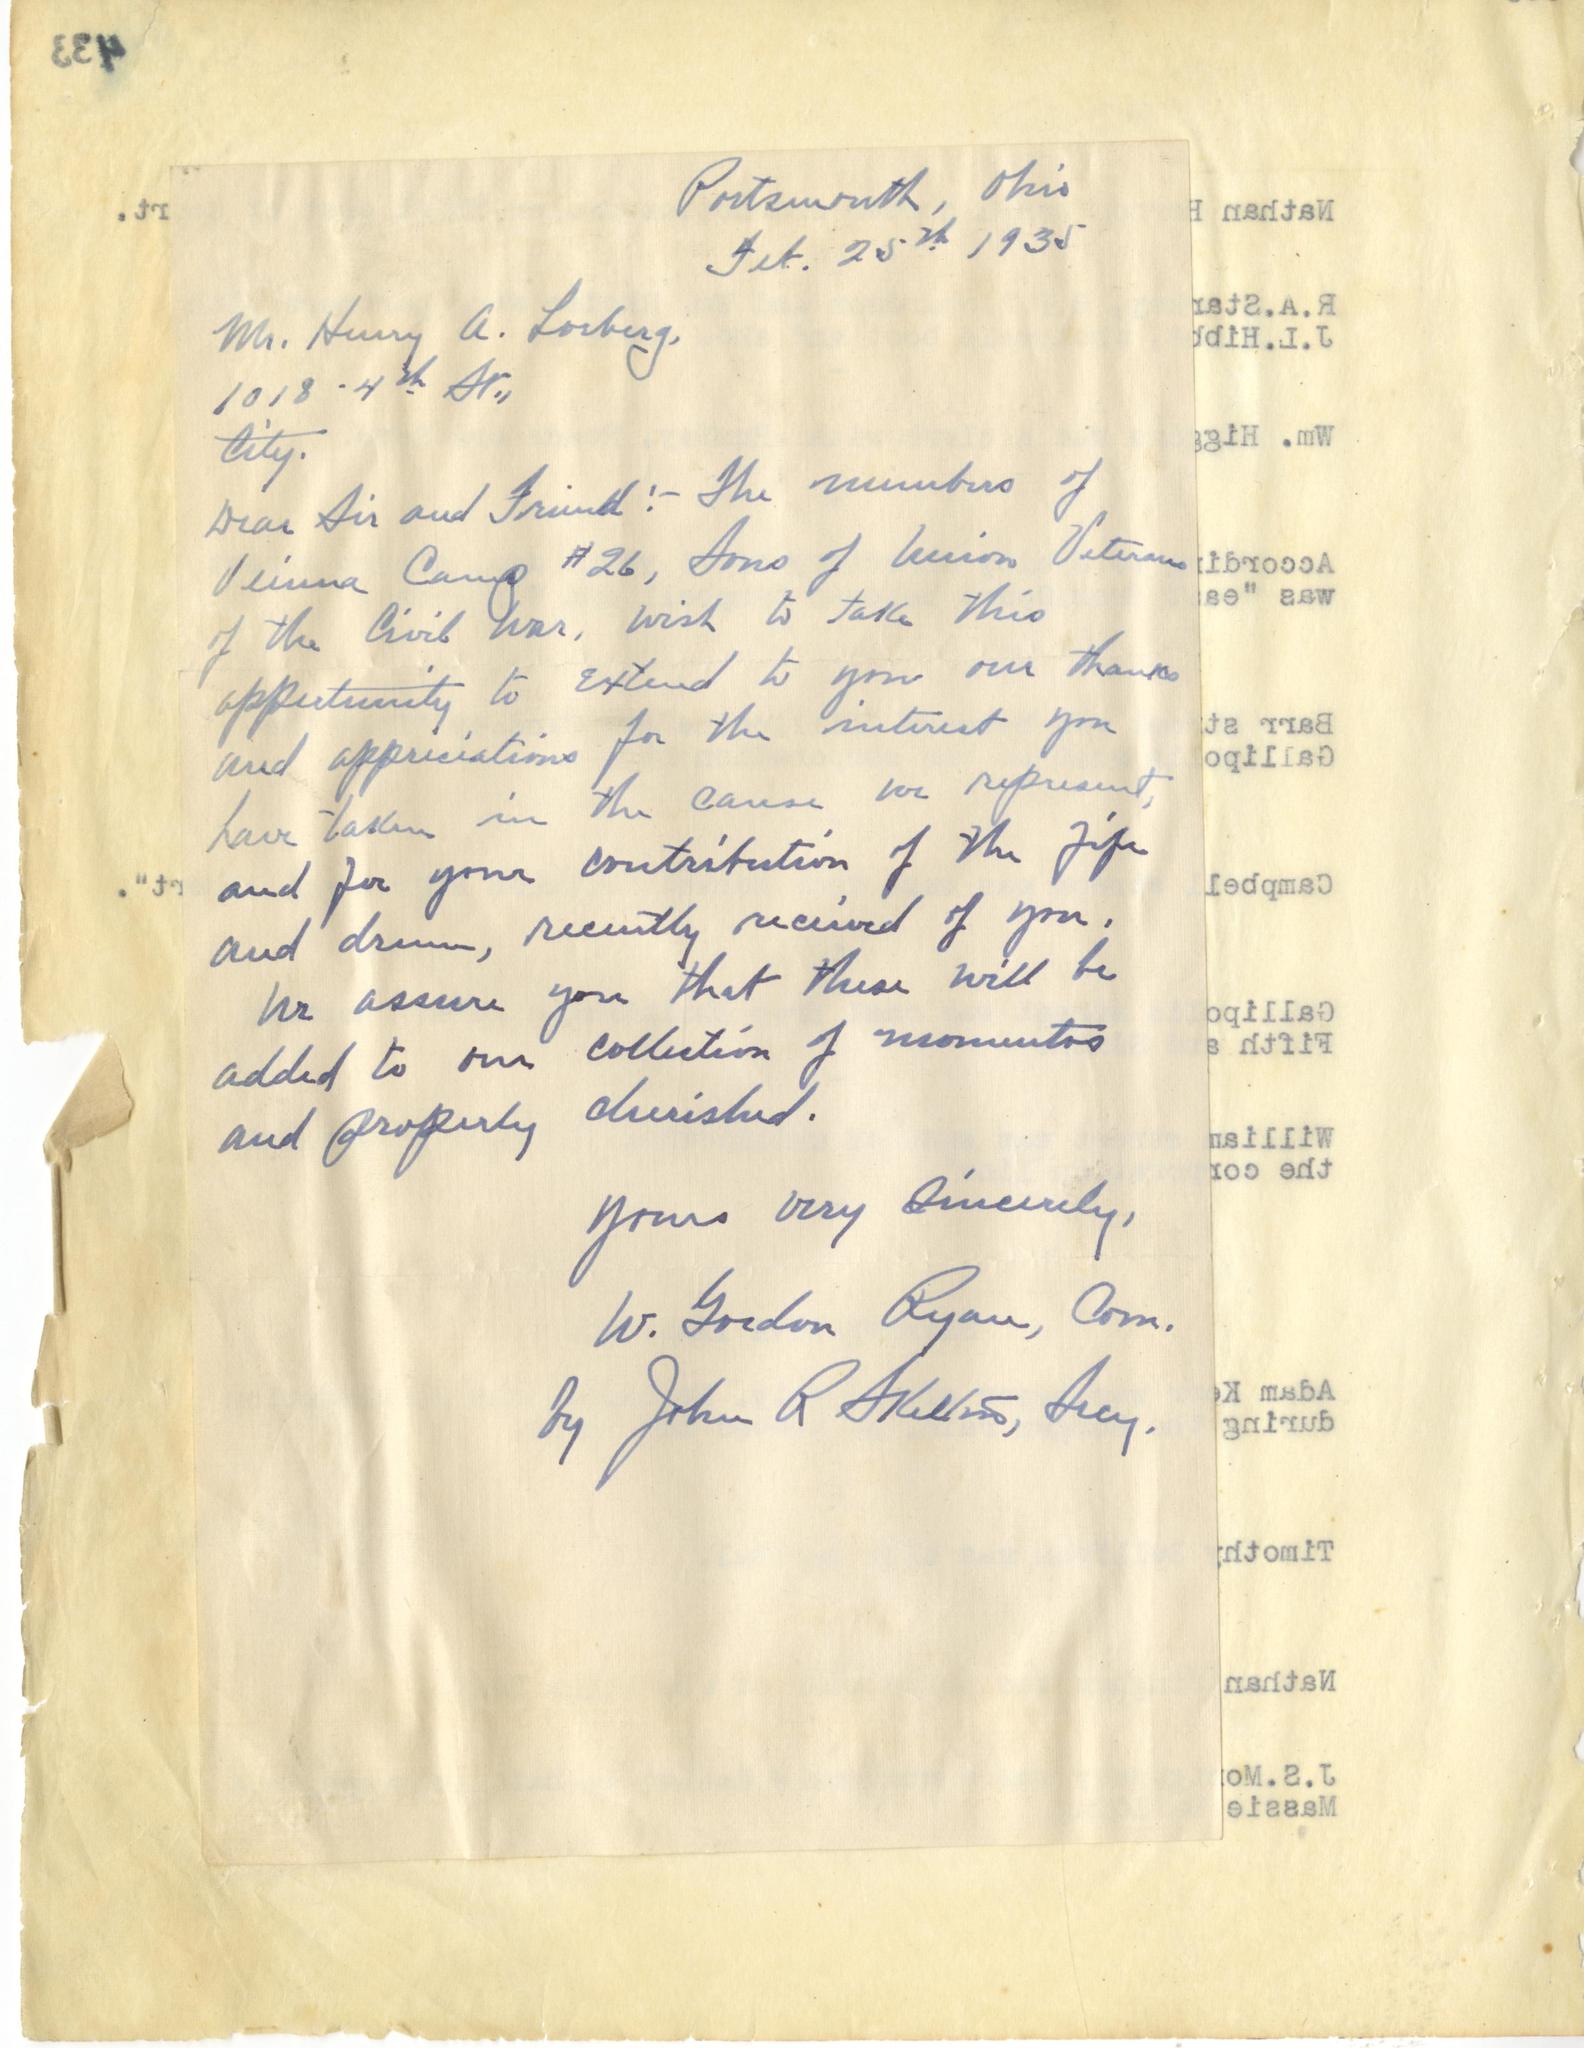 433
Portsmouth, Ohio
Feb. 25th 1935
Mr. Henry A. Lorberg,
1018 - 4th St.,
City.
Dear Sir and Friend:- The members of
Veinna Camp #26, Sons of Union Veterans
of the Civil War, wish to take this
oppertunity to extend to you our thanks
and appriciations for the interest you
have taken in the cause we represent,
and for your contribution of the fife
and drum, recently recieved of you.
We assure you that these will be
added to our collection of momentos
and properly cherished.
Yours very Sincerely,
W. Gordon Ryan, Com.
By John R Skelton, Secy.
rt.
Nathan
R.A.Star
J.L.Hibb
Wm. Higg
Accordin
was "ea
Barr st
Gallipo
rt".
Campbel
Gallipo
Fifth a
William
the cor
Adam Ke
during
Timothy
Nathan
J.S.Mor
Massie